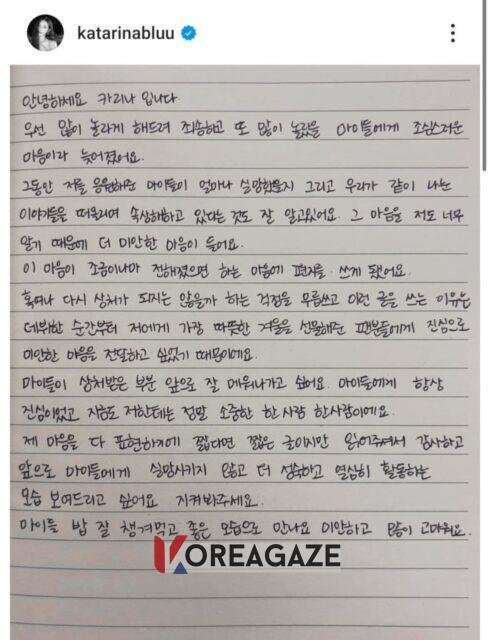 katarinabluu
안녕하세요 카리나 입니다
우선 많이 놀라게 해드려 죄송하고 또 많이 놀랐을 마이들에게 조심스러운
마음이라 늦어졌어요.
그동안 저를 응원해준 마이들이 얼마나 실망했을지 그리고 우리가 같이 나눈
이야기들을 떠올리며 속상해하고 있다는 것도 잘 알고있어요. 그 마음을 저도 너무
알기 때문에 더 미안한 마음이 들어요.
이 마음이 조금이나마 전해졌으면 하는 마음에 편지를 쓰게 됐어요.
혹여나 다시 상처가 되지는 않을까 하는 걱정을 무릅쓰고 이런 글을 쓰는 이유는
데뷔한 순간부터 저에게 가장 따뜻한 겨울을 선물해준 팬분들에게 진심으로
미안한 마음을 전달하고 싶었기 때문이에요.
마이들이 상처받은 부분 앞으로 잘 메워나가고 싶어요. 마이들에게 항상
진심이었고 지금도 저한테는 정말 소중한 한사람 한사람이에요.
제 마음을 다 표현하기에 짧다면 짧은 글이지만 읽어주셔서 감사하고
앞으로 마이들에게 실망시키지 않고 더 성숙하고 열심히 활동하는
모습 보여드리고 싶어요 지켜봐주세요.
마이들 밥 잘 챙겨먹고 좋은 모습으로 만나요 미안하고 많이 고마워요.
KOREAGAZE